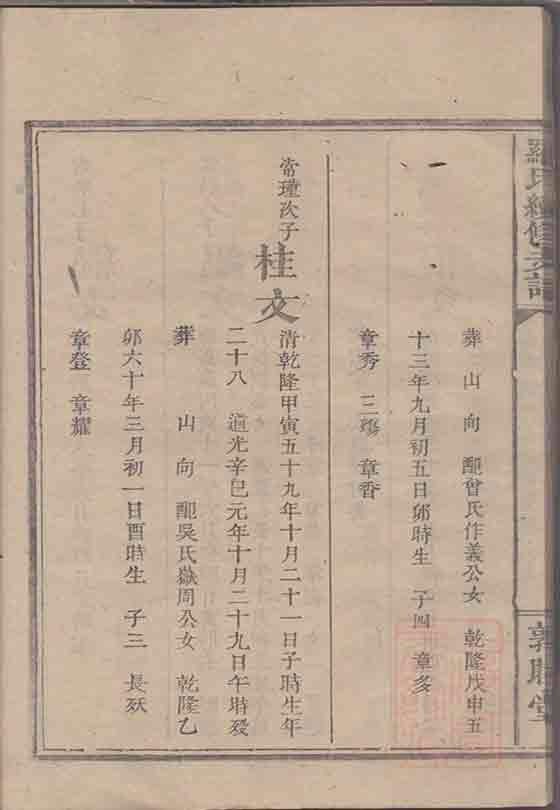 羅氏經修支譜
敦睦堂
葬 山 向 配曾氏作義公女 乾隆戊申五
十三年九月初五日卯時生 子四 章多
章秀 三 章香
常瑾次子
桂文
清乾隆甲寅五十九年十月二十一日子時生年
二十八 道光辛巳元年十月二十九日午時歿
葬 山 向 配吳氏嶽周公女 乾隆乙
卯六十年三月初一日酉時生 子三 長殀
章登 章耀